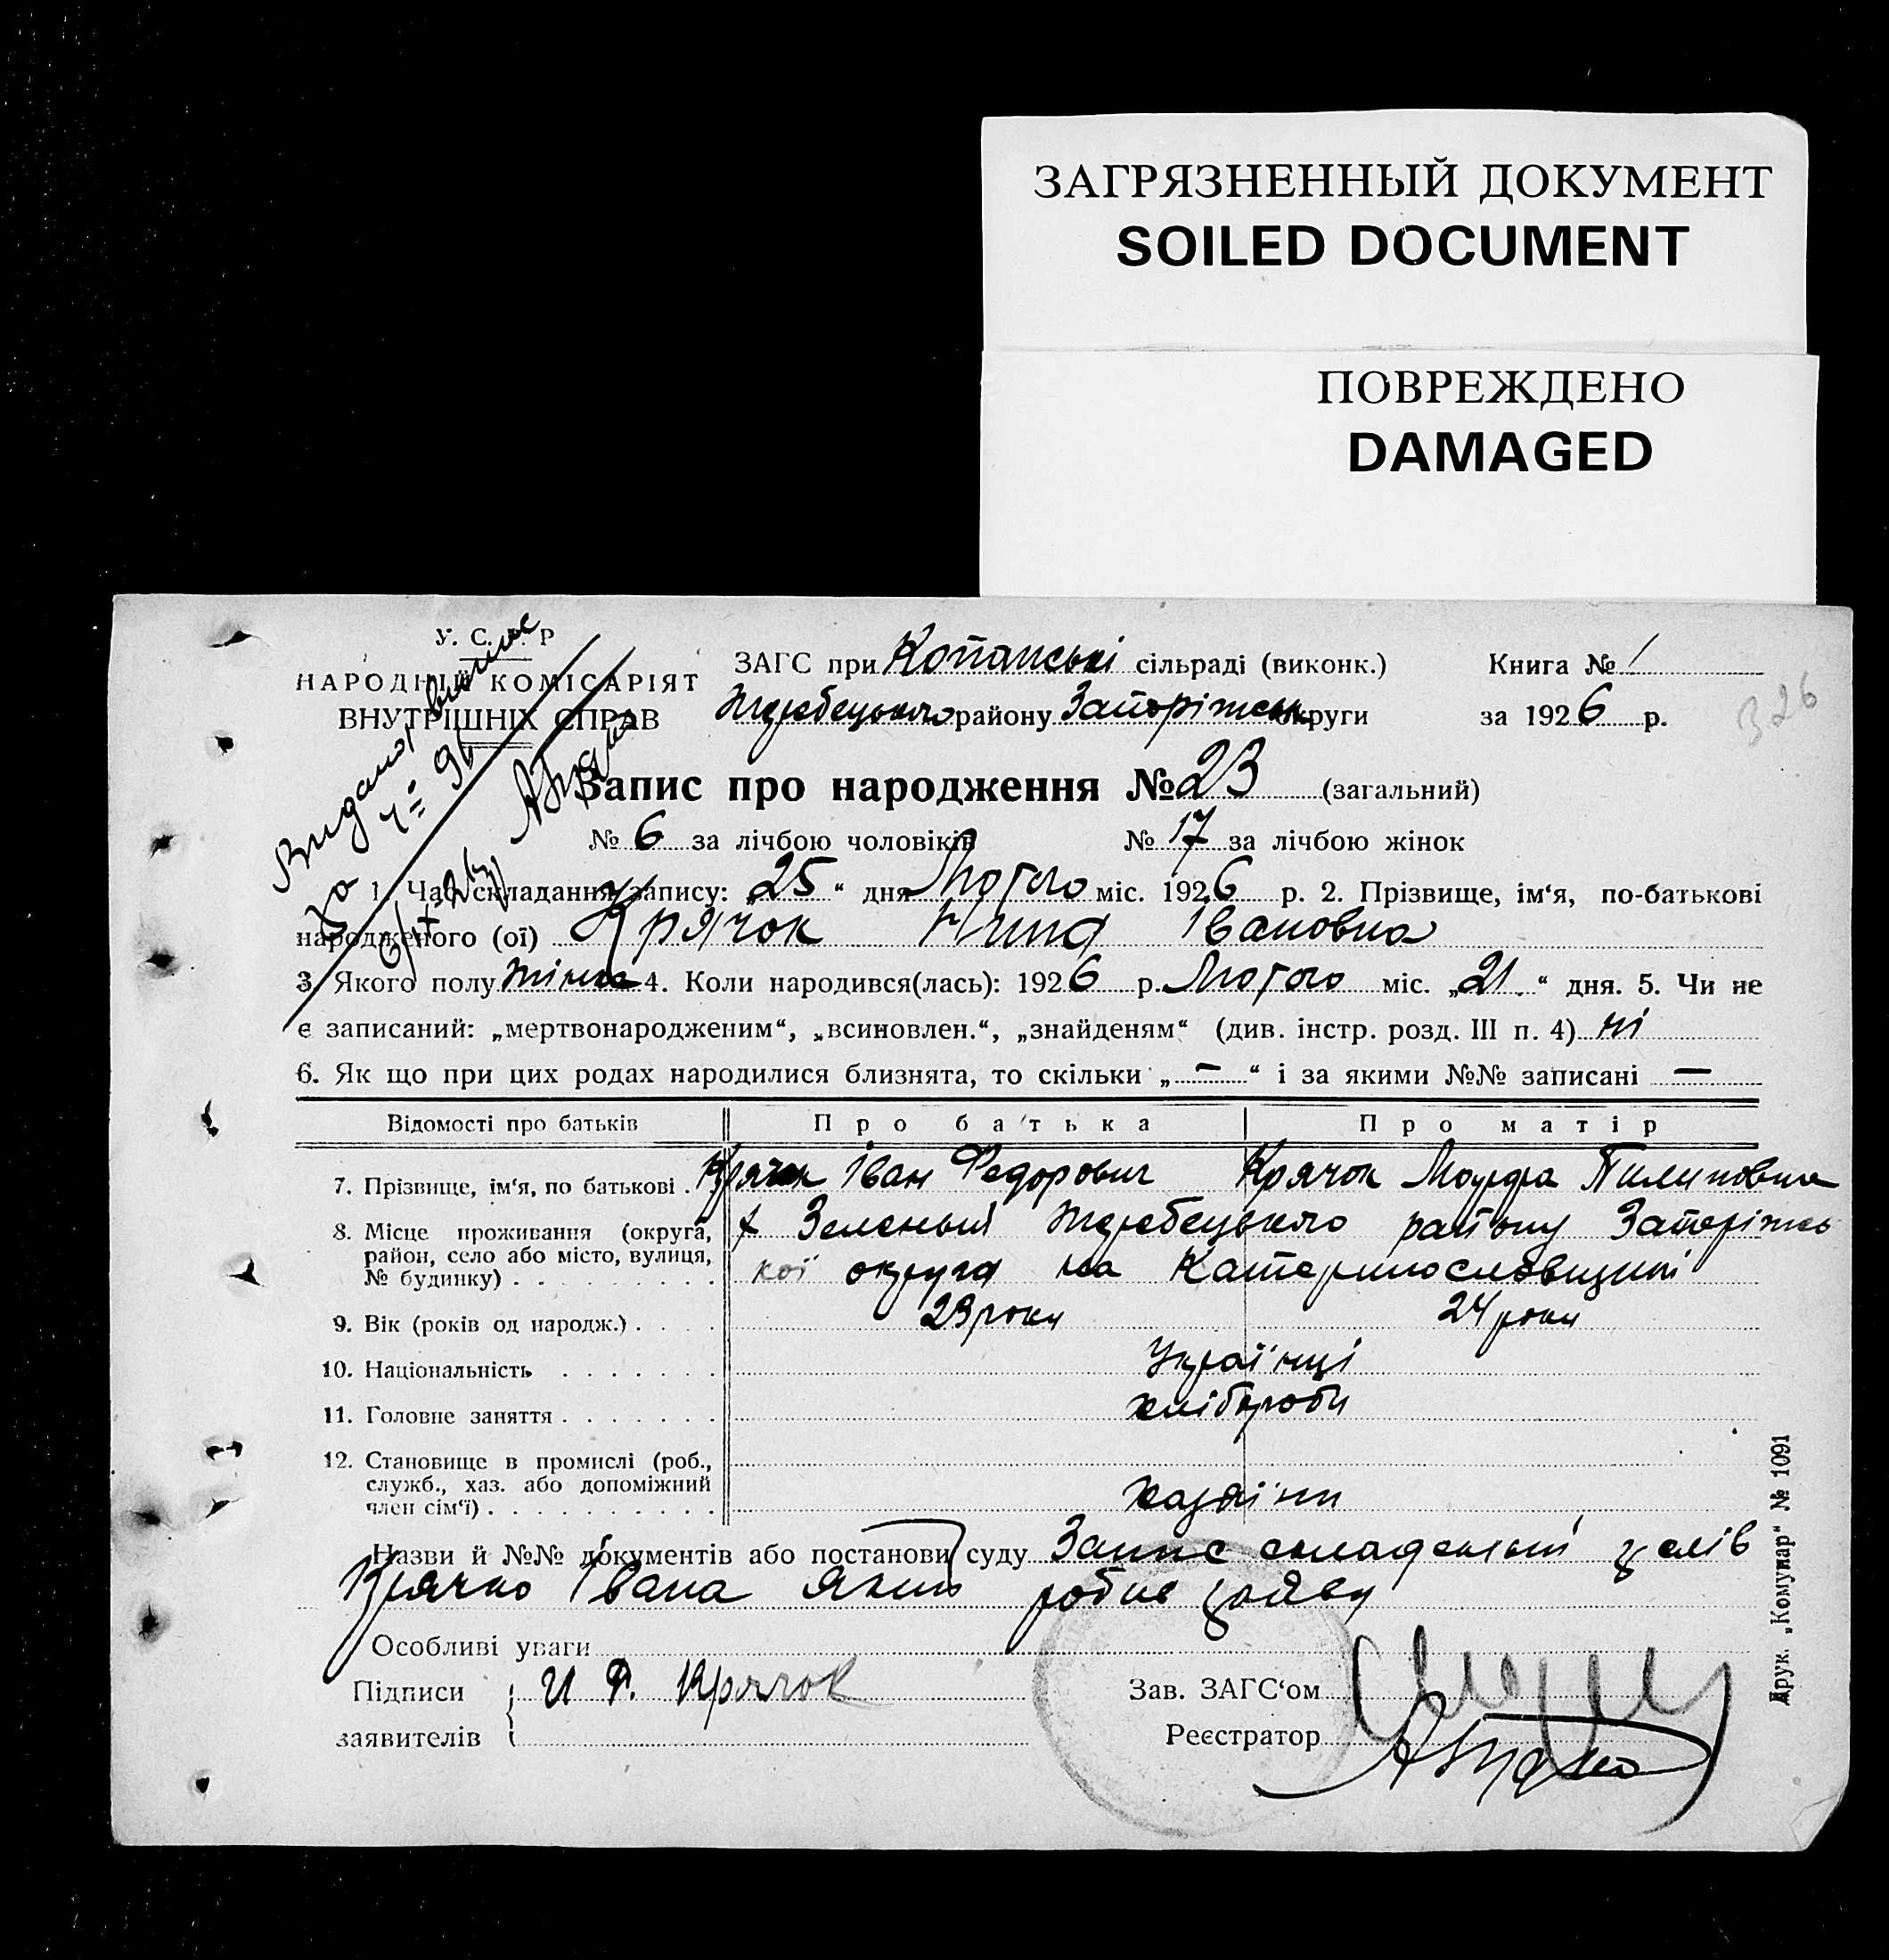 ЗАГРЯЗНЕННЫЙ ДОКУМЕНТ
SOILED DOCUMENT
ПОВРЕЖДЕНО
DAMAGED
У. С. Р
НАРОДНІЙ КОМІСАРІЯТ
ВНУТРІШНІХ СПРАВ
ЗАГС при Копанській сільраді (виконк.) Книга № 1
Жеребецького району Запоріжськ округи за 1926 р.
326
Запис про народження № 23 (загальний)
№ 6 за лічбою чоловіків № 17 за лічбою жінок
1. Час складання запису: „25“ дня Лютого міс. 1926 р. 2. Прізвище, ім‘я, по-батькові
народженого (ої) Крячок Нина Івановна
3. Якого полу жіноч 4. Коли народився(лась): 1926 р. Лютого міс. „21“ дня. 5. Чи не
є записаний: „мертвонародженим“, „всиновлен.“, „знайденям“ (див. інстр. розд. III п. 4) ні
6. Як що при цих родах народилися близнята, то скільки „—“ і за якими №№ записані —
Відомості про батьків Про батька Про матір
7. Прізвище, ім‘я, по батькові Крячок Іван Федорович Крячок Марфа Пилиповна
8. Місце проживання (округа, район, село або місто, вулиця, № будинку) х Зелений Жеребецького району Запоріжсь
кої округа на Катеринославщині
9. Вік (років од народж.) 23 роки 24 роки
10. Національність Українці
11. Головне заняття хлібороби
12. Становище в промислі (роб., служб., хаз. або допоміжний член сім‘ї) хазяїни
Назви й №№ документів або постанови суду Запис складений з слів
Крячко Івана який робив заяву
Особливі уваги
Підписи заявителів И Ф. Крячок
Зав. ЗАГС‘ом
Реєстратор
Друк. „Комунар“ № 1091